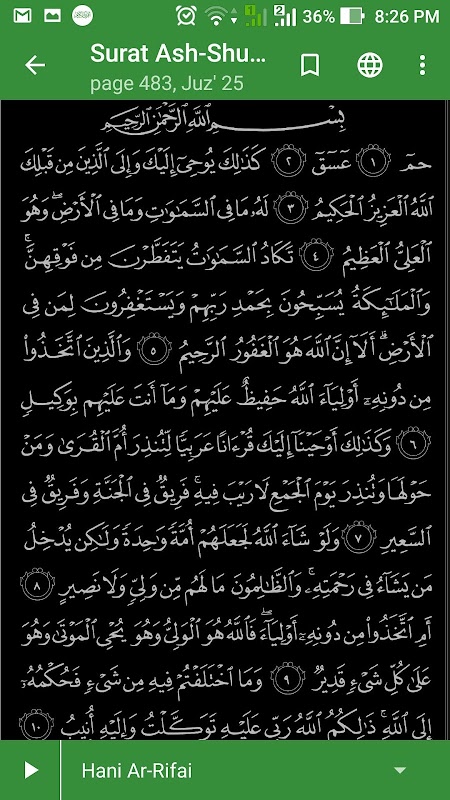 36% 8:26 PM
Surat Ash-Shu...
page 483, Juz' 25
بِسْمِ ٱللَّهِ ٱلرَّحْمَٰنِ ٱلرَّحِيمِ
حمٓ ١ عٓسٓقٓ ٢ كَذَٰلِكَ يُوحِىٓ إِلَيْكَ وَإِلَى ٱلَّذِينَ مِن قَبْلِكَ
ٱللَّهُ ٱلْعَزِيزُ ٱلْحَكِيمُ ٣ لَهُۥ مَا فِى ٱلسَّمَٰوَٰتِ وَمَا فِى ٱلْأَرْضِ ۖ وَهُوَ
ٱلْعَلِىُّ ٱلْعَظِيمُ ٤ تَكَادُ ٱلسَّمَٰوَٰتُ يَتَفَطَّرْنَ مِن فَوْقِهِنَّ ۚ
وَٱلْمَلَٰٓئِكَةُ يُسَبِّحُونَ بِحَمْدِ رَبِّهِمْ وَيَسْتَغْفِرُونَ لِمَن فِى
ٱلْأَرْضِ ۗ أَلَآ إِنَّ ٱللَّهَ هُوَ ٱلْغَفُورُ ٱلرَّحِيمُ ٥ وَٱلَّذِينَ ٱتَّخَذُوا۟
مِن دُونِهِۦٓ أَوْلِيَآءَ ٱللَّهُ حَفِيظٌ عَلَيْهِمْ وَمَآ أَنتَ عَلَيْهِم بِوَكِيلٍ
٦ وَكَذَٰلِكَ أَوْحَيْنَآ إِلَيْكَ قُرْءَانًا عَرَبِيًّا لِّتُنذِرَ أُمَّ ٱلْقُرَىٰ وَمَنْ
حَوْلَهَا وَتُنذِرَ يَوْمَ ٱلْجَمْعِ لَا رَيْبَ فِيهِ ۚ فَرِيقٌ فِى ٱلْجَنَّةِ وَفَرِيقٌ فِى
ٱلسَّعِيرِ ٧ وَلَوْ شَآءَ ٱللَّهُ لَجَعَلَهُمْ أُمَّةً وَٰحِدَةً وَلَٰكِن يُدْخِلُ
مَن يَشَآءُ فِى رَحْمَتِهِۦ ۚ وَٱلظَّٰلِمُونَ مَا لَهُم مِّن وَلِىٍّ وَلَا نَصِيرٍ ٨
أَمِ ٱتَّخَذُوا۟ مِن دُونِهِۦٓ أَوْلِيَآءَ ۖ فَٱللَّهُ هُوَ ٱلْوَلِىُّ وَهُوَ يُحْىِ ٱلْمَوْتَىٰ وَهُوَ
عَلَىٰ كُلِّ شَىْءٍ قَدِيرٌ ٩ وَمَا ٱخْتَلَفْتُمْ فِيهِ مِن شَىْءٍ فَحُكْمُهُۥٓ
إِلَى ٱللَّهِ ۚ ذَٰلِكُمُ ٱللَّهُ رَبِّى عَلَيْهِ تَوَكَّلْتُ وَإِلَيْهِ أُنِيبُ ١٠
Hani Ar-Rifai